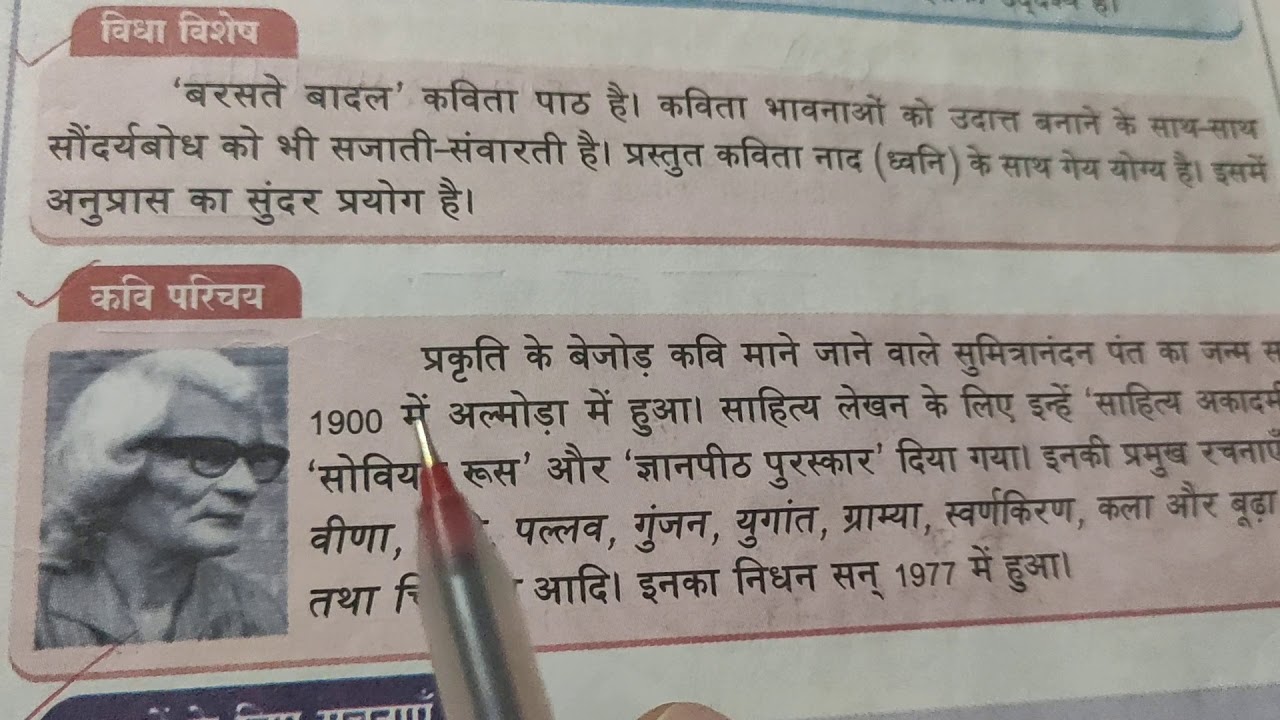 उद्देश्य है।
विधा विशेष
'बरसते बादल' कविता पाठ है। कविता भावनाओं को उदात्त बनाने के साथ-साथ
सौंदर्यबोध को भी सजाती-संवारती है। प्रस्तुत कविता नाद (ध्वनि) के साथ गेय योग्य है। इसमें
अनुप्रास का सुंदर प्रयोग है।
कवि परिचय
प्रकृति के बेजोड़ कवि माने जाने वाले सुमित्रानंदन पंत का जन्म
1900 में अल्मोड़ा में हुआ। साहित्य लेखन के लिए इन्हें 'साहित्य
रूस' और 'ज्ञानपीठ पुरस्कार' दिया गया। इनकी प्रमुख रचनाएँ
वीणा, पल्लव, गुंजन, युगांत, ग्राम्या, स्वर्णकिरण, कला और बूढ़ा
तथा आदि। इनका निधन सन् 1977 में हुआ।